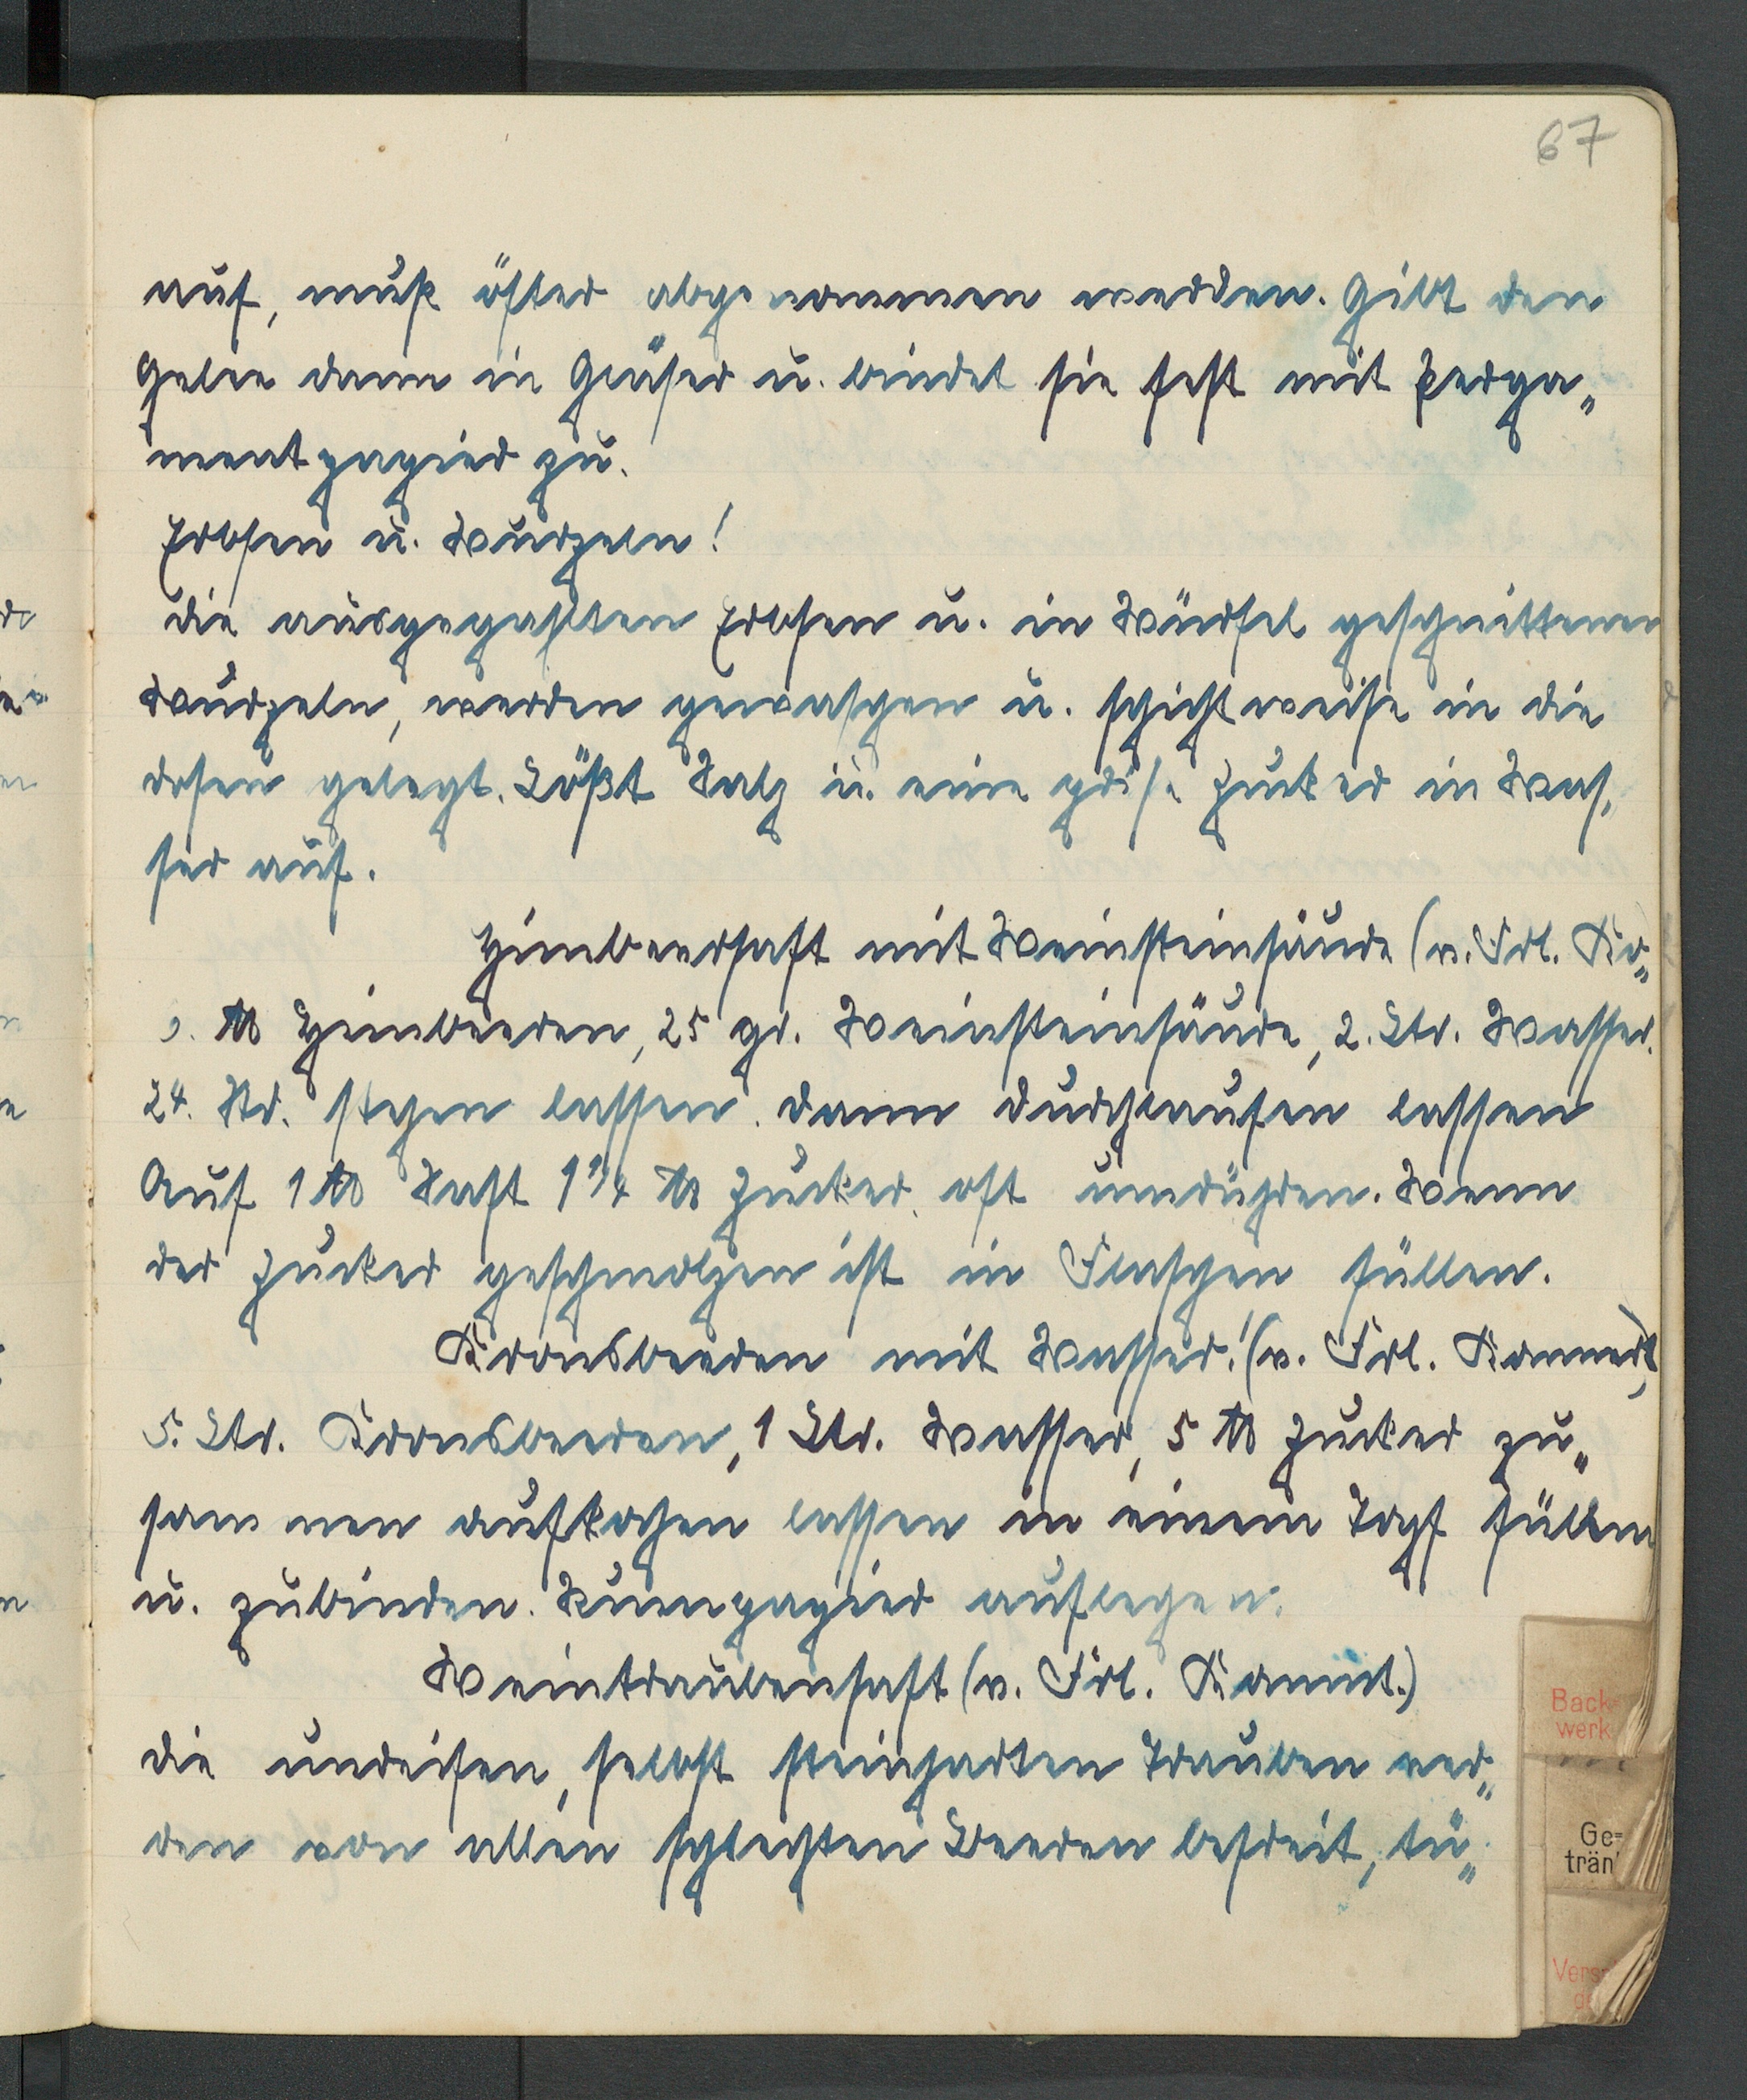 67
auf, muß öfter abgenommen werden. Gibt den
Gelee dann in Gläser u. bindet sie fest mit Perga„
mentpapier zu.
Erbsen u. Wurzeln!
Die ausgepahlten Erbsen u. in Würfel geschnittenen
Wurzeln, werden gewaschen u. schichtweise in die
Dosen gelegt. Lößt Salz u. eine prise Zucker in Was„
ser auf.
Himbeersaft mit Weinsteinsäure (v. Frl. Ko„
℔ Himbeeren, 25 gr. Weinsteinsäure, 2. Ltr. Wasser.
24. Std. stehen lassen. Dann durchlaufen lassen
Auf 1 ℔ Saft 1 1/4 ℔ Zucker, oft umrühren. Wenn
der Zucker geschmolzen ist in Flaschen füllen.
Kronsbeeren mit Wasser! (v. Frl.
5. Ltr. Kronsbeeren, 1 Ltr. Wasser, 5 ℔ Zucker zu„
sammen aufkochen lassen in einem Topf füllen
u. zubinden. Rumpapier auflegen.
Weintraubensaft (v. Frl.
Die unreifen, selbst steinharten Trauben wer„
den von allen schlechten Beeren befreit, tü„
Back-
werk
Ge=
trän
Vers